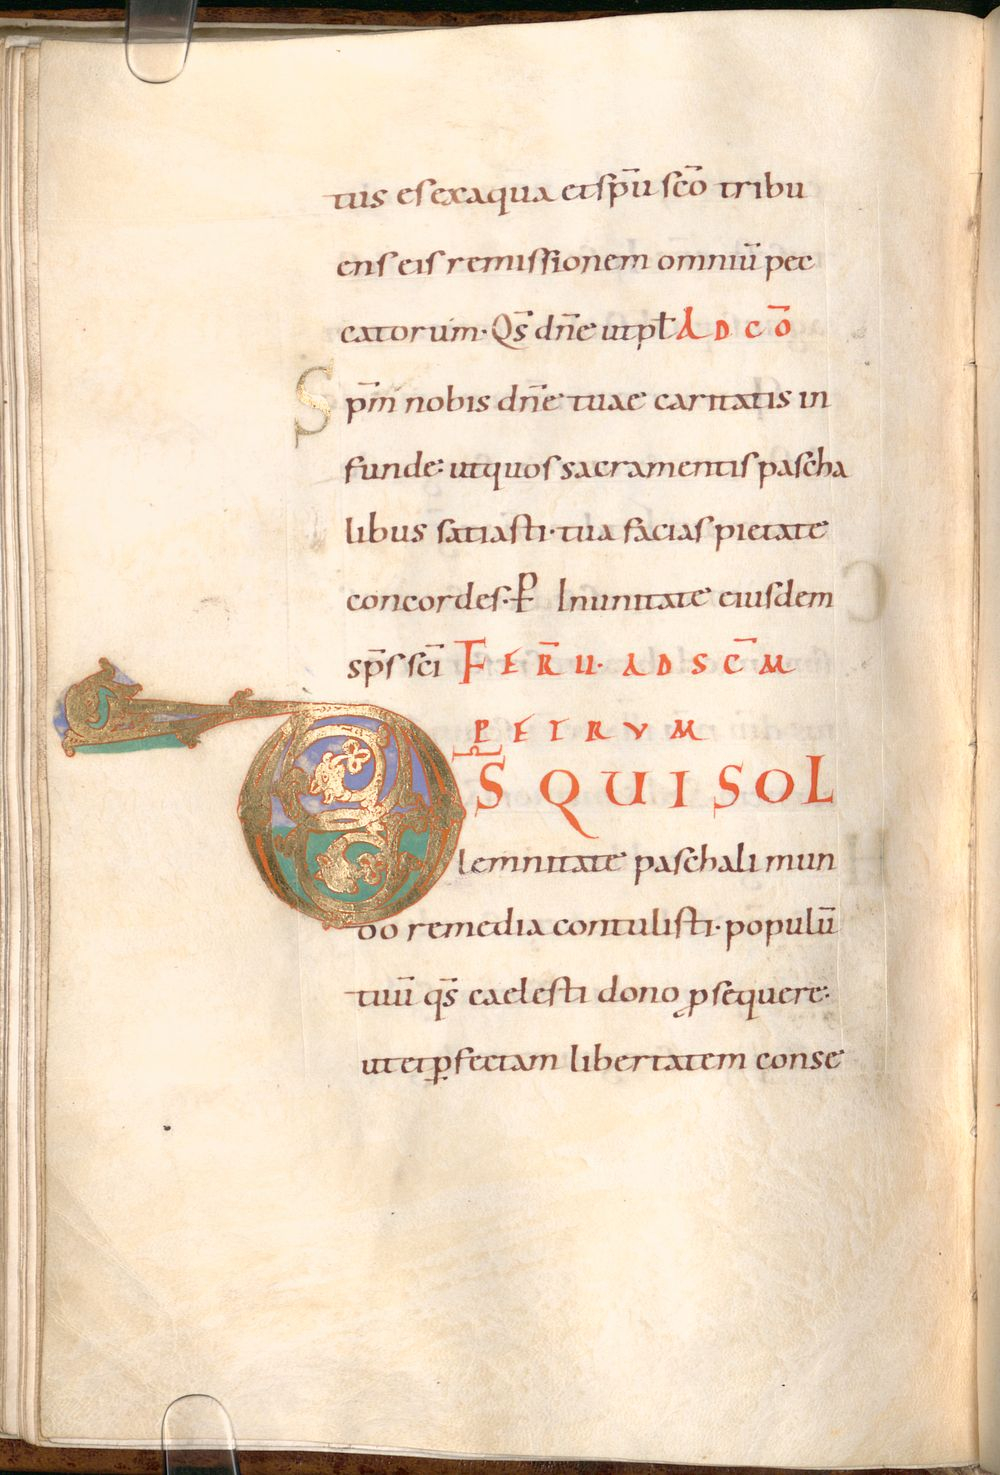 tus es ex aqua et sp̄u sc̄o tribu
ens eis remissionem omniū pec
catorum· Qs̄ dn̄e ut pl̄ AD CŌ
Sp̄m nobis dn̄e tuae caritatis in
funde· ut quos sacramentis pascha
libus satiasti· tua facias pietate
concordes· P̄ In unitate eiusdem
sp̄s sc̄i FER̄ II· AD SC̄M
PETRVM
DS QUI SOL
lemnitate paschali mun
do remedia contulisti· populū
tuū qs̄ caelesti dono ꝓsequere·
ut et ꝑfectam libertatem conse